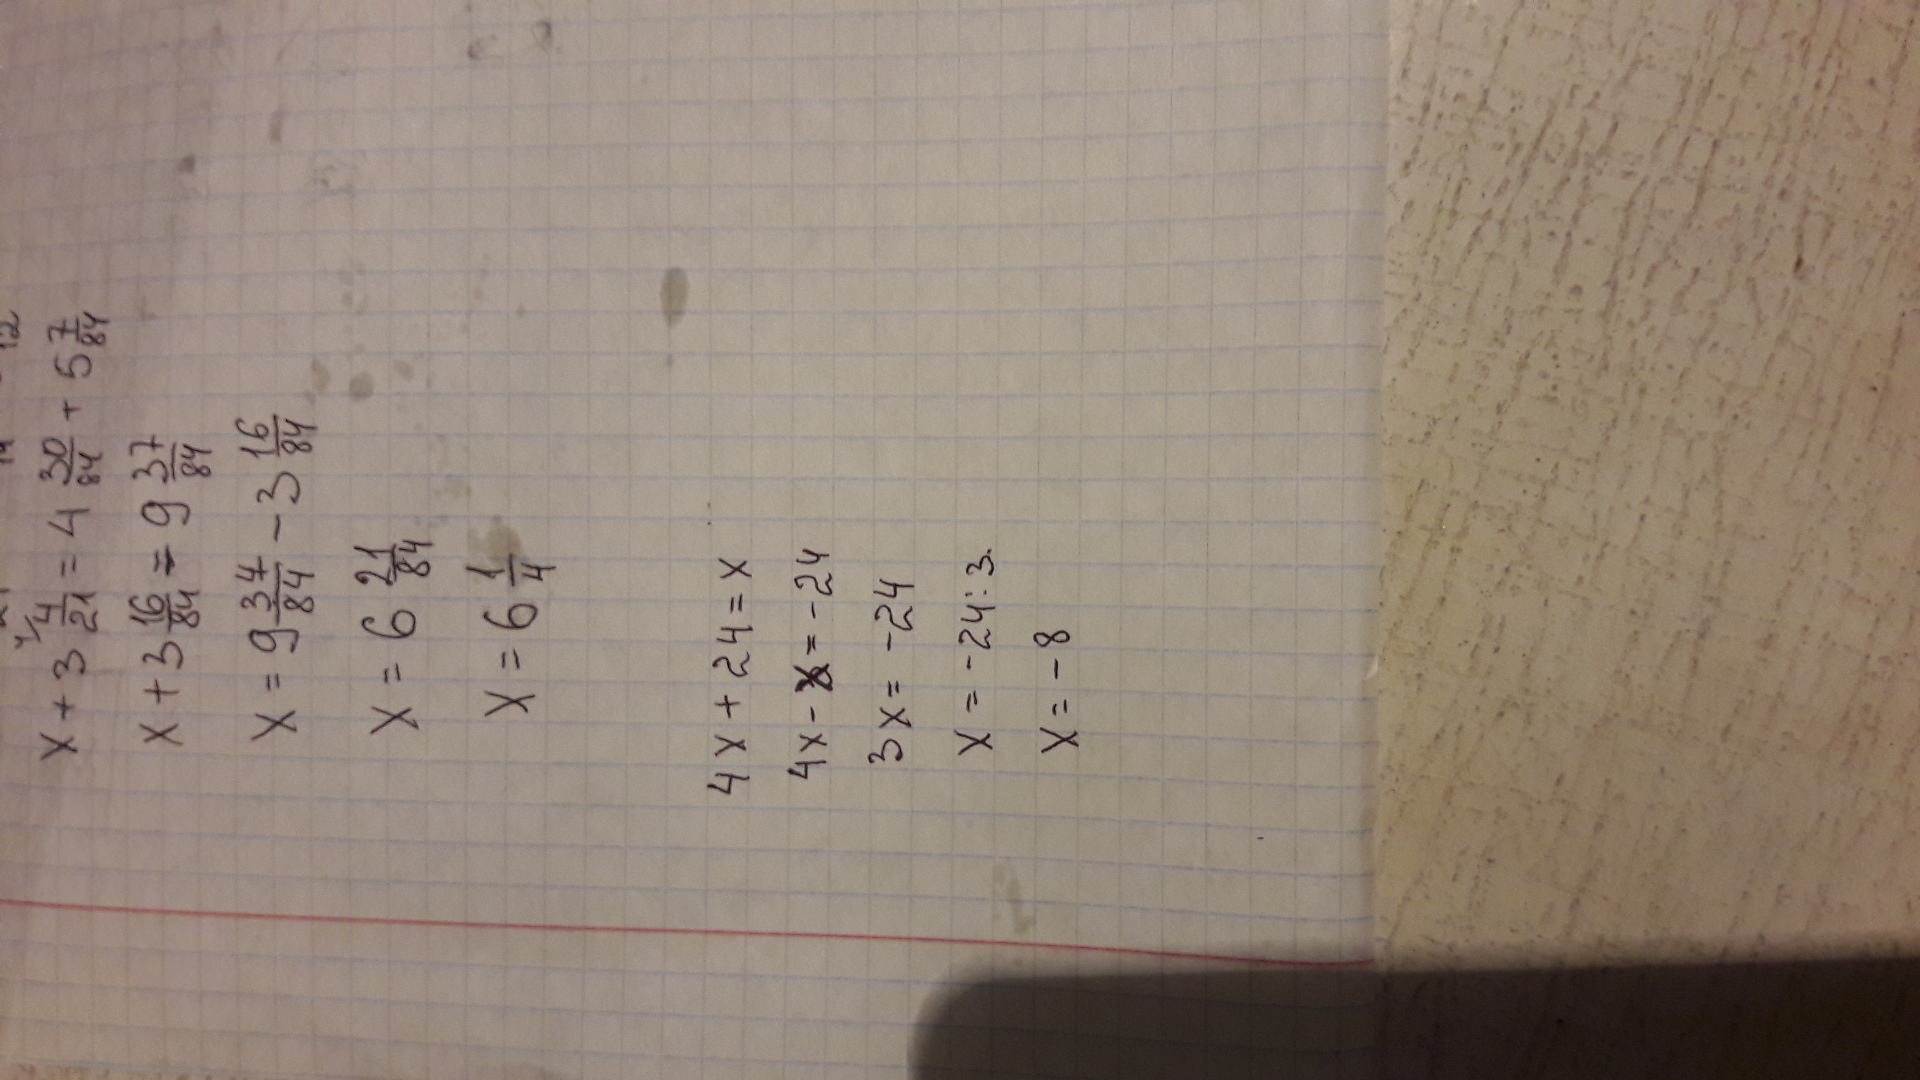 x + 3 4/21 = 4 30/84 + 5 7/84
x + 3 16/84 = 9 37/84
x = 9 37/84 - 3 16/84
x = 6 21/84
x = 6 1/4
4x + 24 = x
4x - x = -24
3x = -24
x = -24 : 3
x = -8